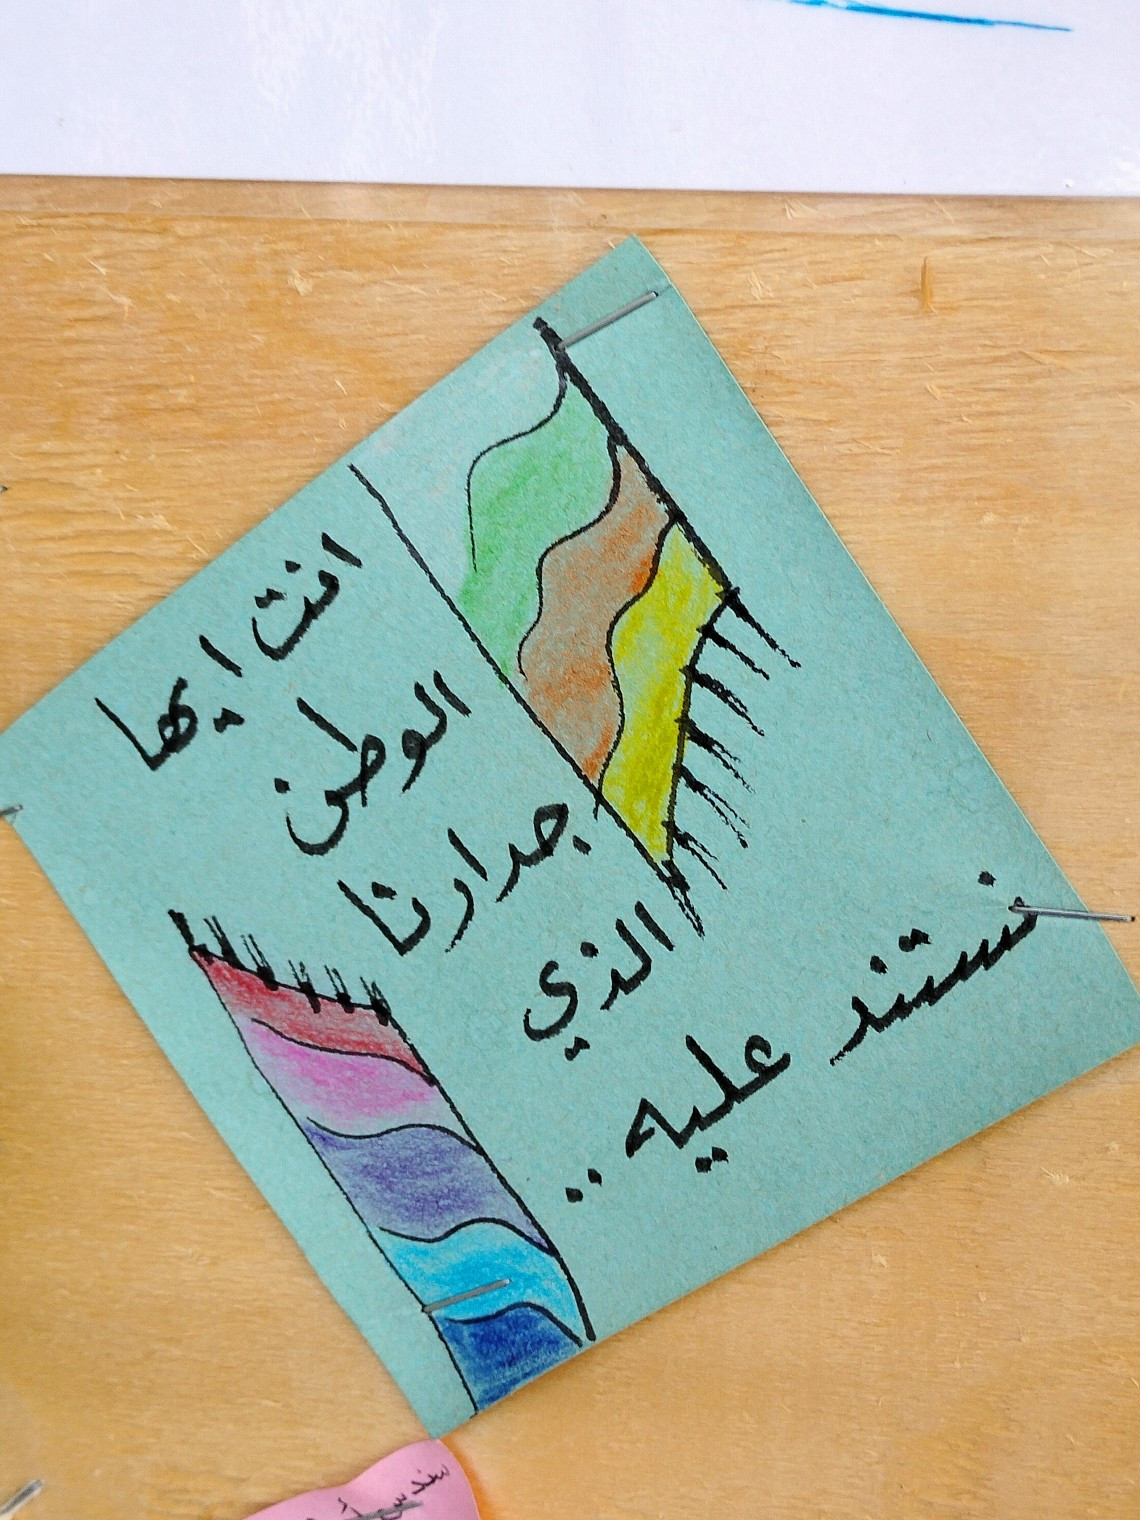 انت ايها
الوطن
جدارنا
الذي
نستند عليه..
سندس